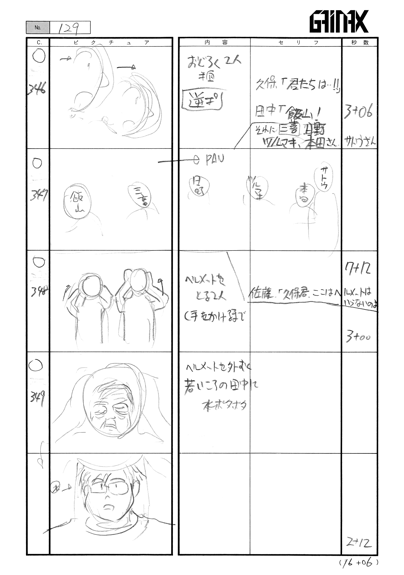 GAINAX
No. 129
C ピクチュア 内容 セリフ 秒数
346
おどろく2人
逆ポリ
久保「君たちは…!!
田中「飯山!
それに三富 日野
ツルマキ、本田さん
サトウさん
3+06
347
PAU
飯山
三富
日野
ツルマキ
本田
サトウ
7+12
348
ヘルメットを
とる2人
(手をかけるまで
佐藤「久保君、ここはヘルメットは
いらないのよ
3+00
349
ヘルメットを外すと
若いころの田中に
2+12
(16+06)